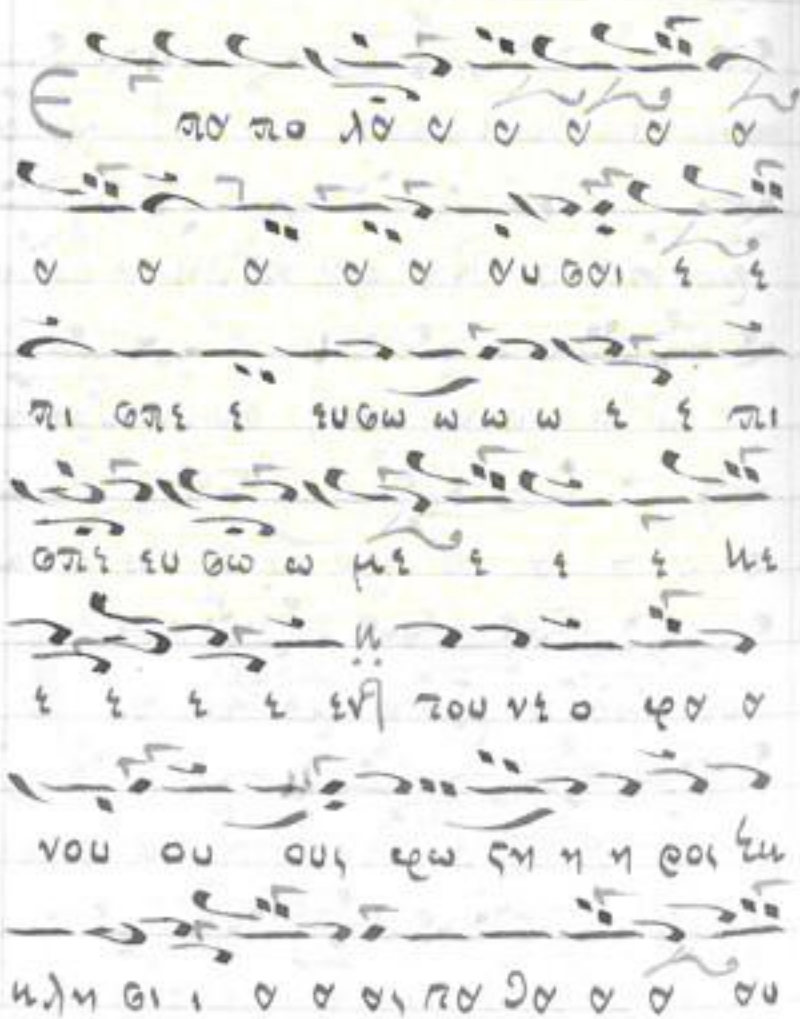 Ε πα πο λα α α α α α
α α α α α αυ σαι ε ε
πι σπε ε ευ σω ω ω ω ε ε πι
σπε ευ σω ω με ε ε ε κε
ε ε ε ε εν του νε ο φα α
νου ου ους φω ϛη η η ρος εκ
κλη σι ι α α ας πα θα α α αυ